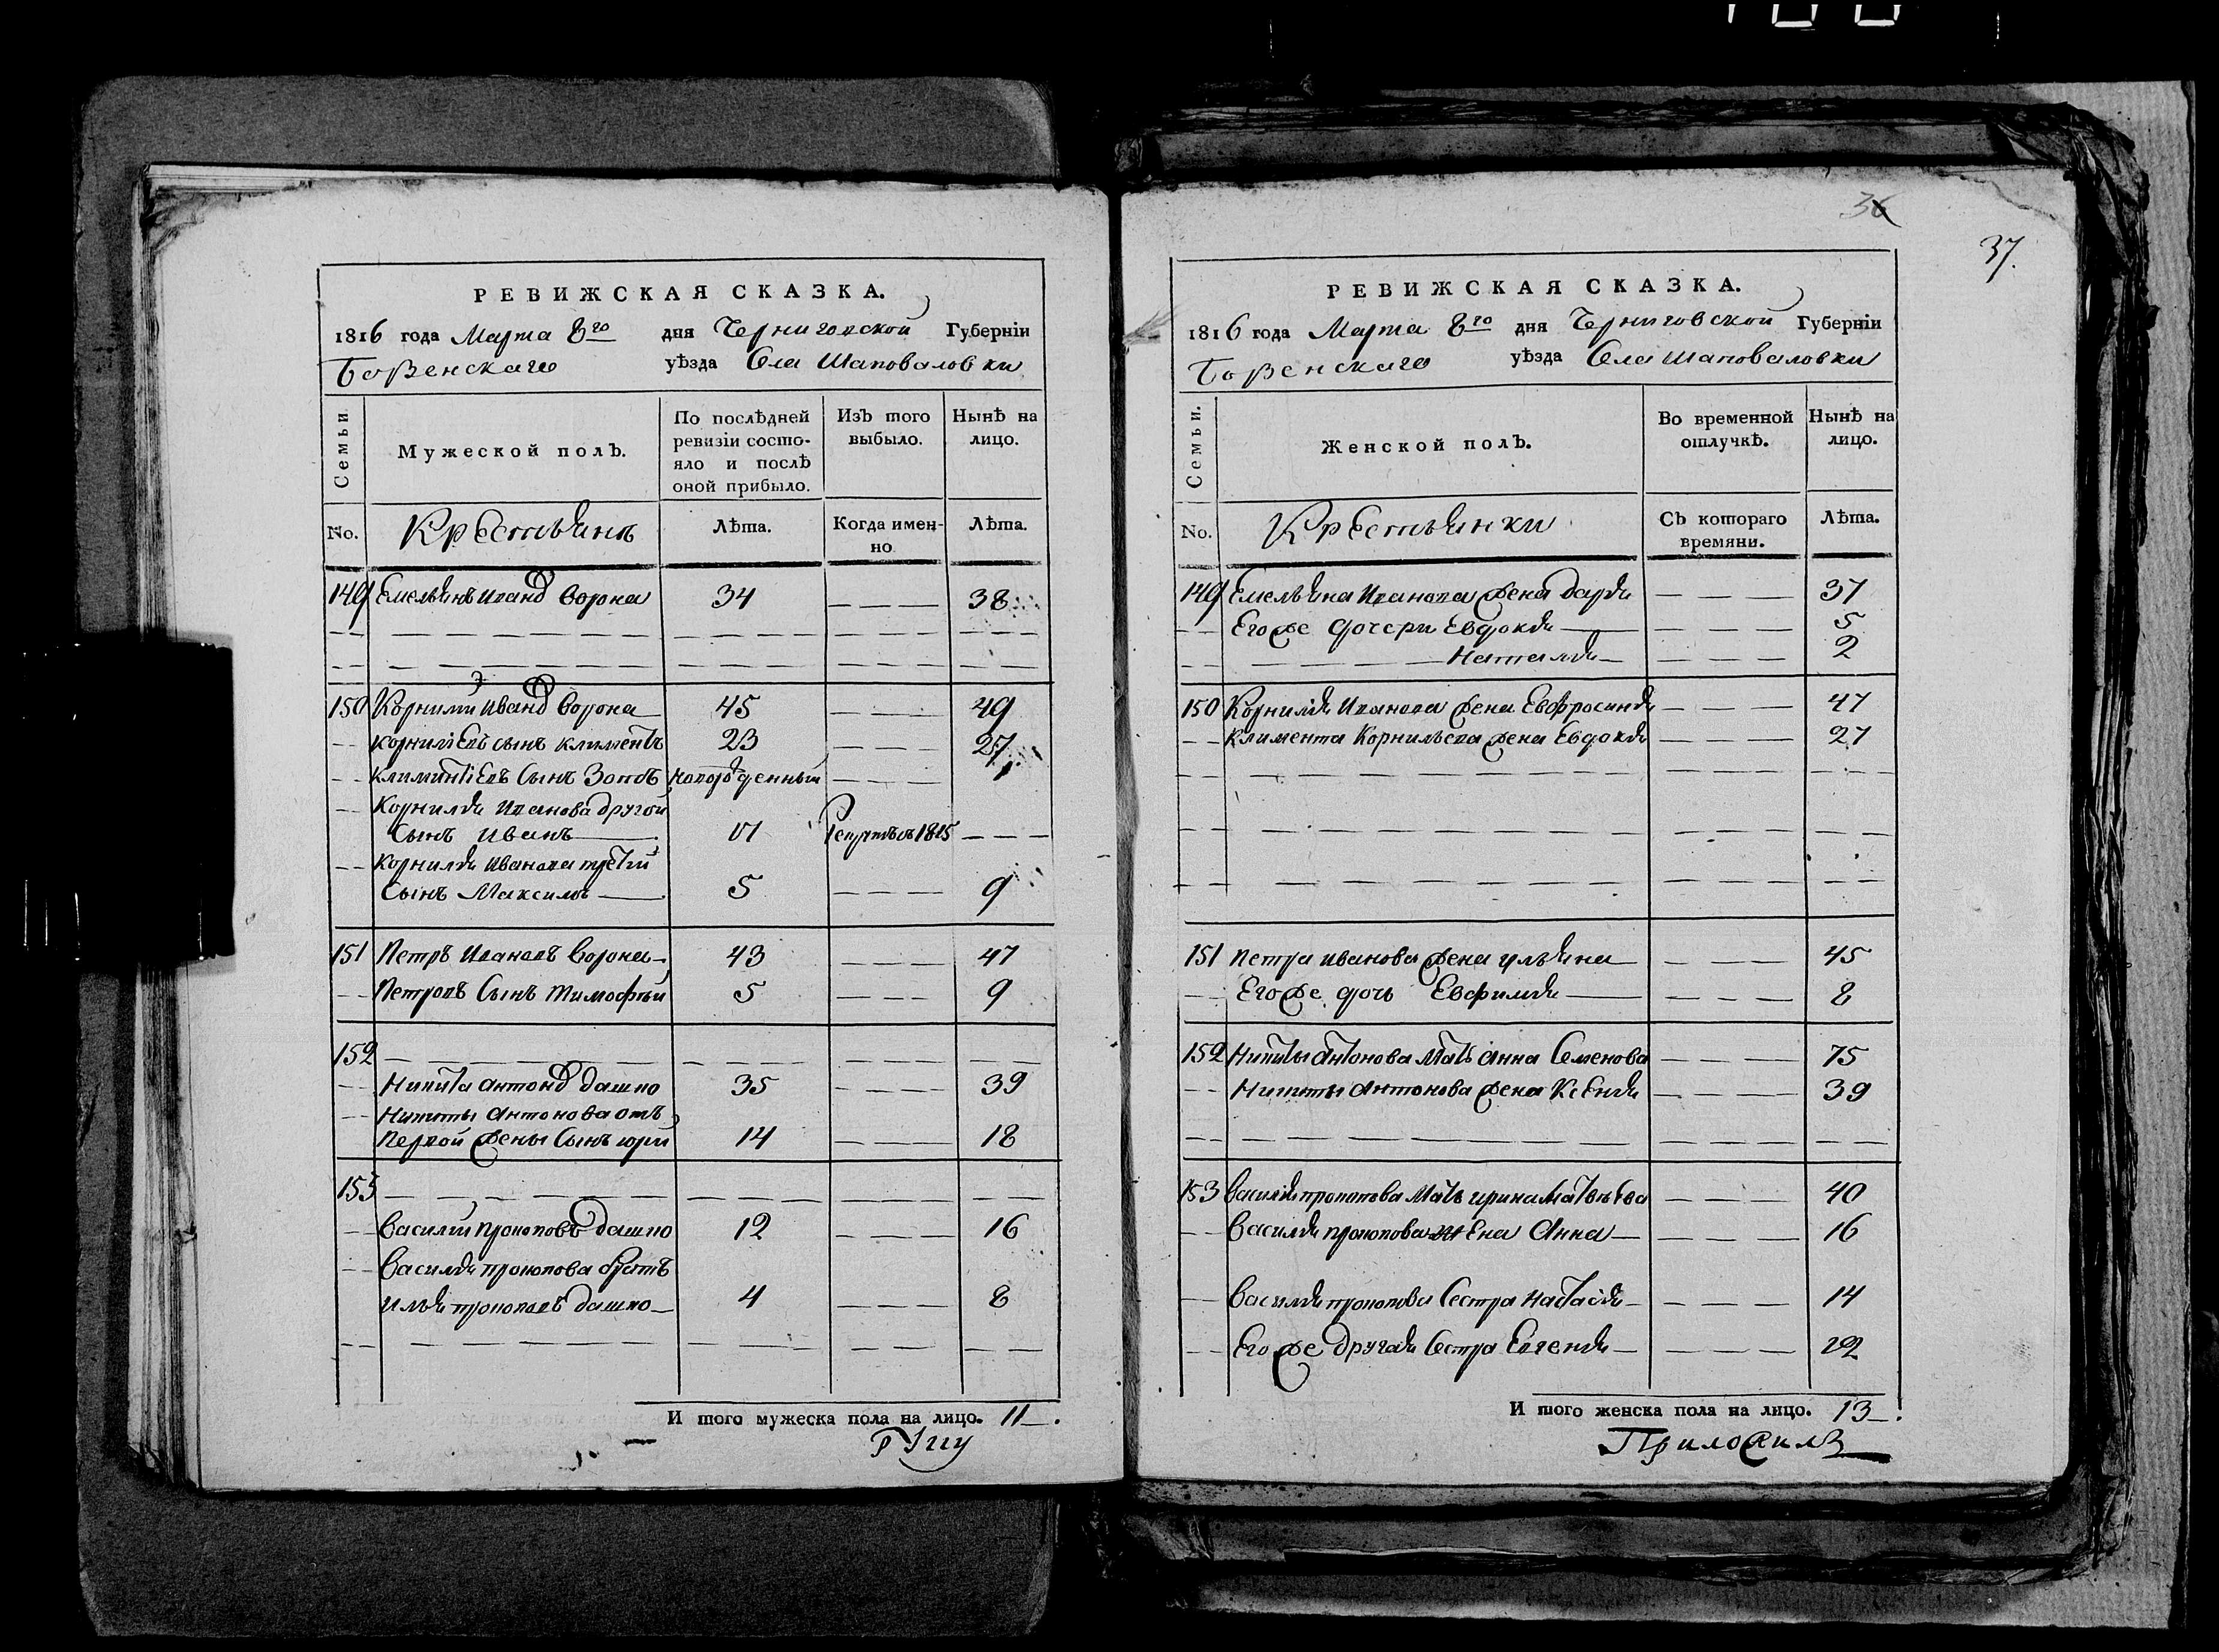 36
37.
РЕВИЖСКАЯ СКАЗКА.
1816 года Марта 8го дня Черниговской Губерніи
Борзенскаго уѣзда Села Шаповаловки
Семьи
Мужеской полъ.
По послѣдней ревизіи состояло и послѣ оной прибыло.
Изъ того выбыло.
Нынѣ на лицо.
No. Крестьянъ Лѣта. Когда именно Лѣта.
149 Емельянъ Иванов Ворона 34 — — — 38
150 Корнилій Иванов Ворона 45 — — — 49
— — Корниліевъ сынъ Климентъ 23 — — — 27
— — Климентіевъ Сынъ новорожденный — — —
— — Корнилия Иванова другой
Сынъ Иванъ 1815 — — —
— — Корнилия Иванова третій
Сынъ Максимъ 5 — — — 9
151 Петръ Ивановъ Ворона 43 — — — 47
— — Петровъ Сынъ Тимофѣй 5 — — — 9
152
— — Никита Антонов Дашко 35 — — — 39
— — Никиты Антонова отъ
Первой жены Сынъ Юрій 14 — — — 18
153
— — Василій Прокоповъ Дашко 12 — — — 16
— — Василия Прокопова братъ
Илья Прокоповъ Дашко 4 — — — 8
И того мужеска пола на лицо. 11.
РЕВИЖСКАЯ СКАЗКА.
1816 года Марта 8го дня Черниговской Губерніи
Борзенскаго уѣзда Села Шаповаловки
Семьи.
Женской полъ.
Во временной отлучкѣ.
Нынѣ на лицо.
No. Крестьянки Съ котораго времяни. Лѣта.
149 Емельяна Иванова жена Дария — — — 37
— — Его же дочери Евдокия — — — 5
Наталия — — — 2
150 Корнилия Иванова жена Евфросиния — — — 47
— — Климента Корнильева жена Евдокия — — — 27
151 Петра Иванова жена Ульяна — — — 45
— — Его же дочь Евфимия — — — 8
152 Никиты Антонова Мать Анна Семенова — — — 75
— — Никиты Антонова жена Ксения — — — 39
153 Василия Прокопова Мать Ирина Матвѣева — — — 40
— — Василия Прокопова жена Анна — — — 16
— — Василия Прокопова Сестра Настасия — — — 14
— — Его же другая Сестра Евгения — — —
И того женска пола на лицо. 13.
Приложилъ